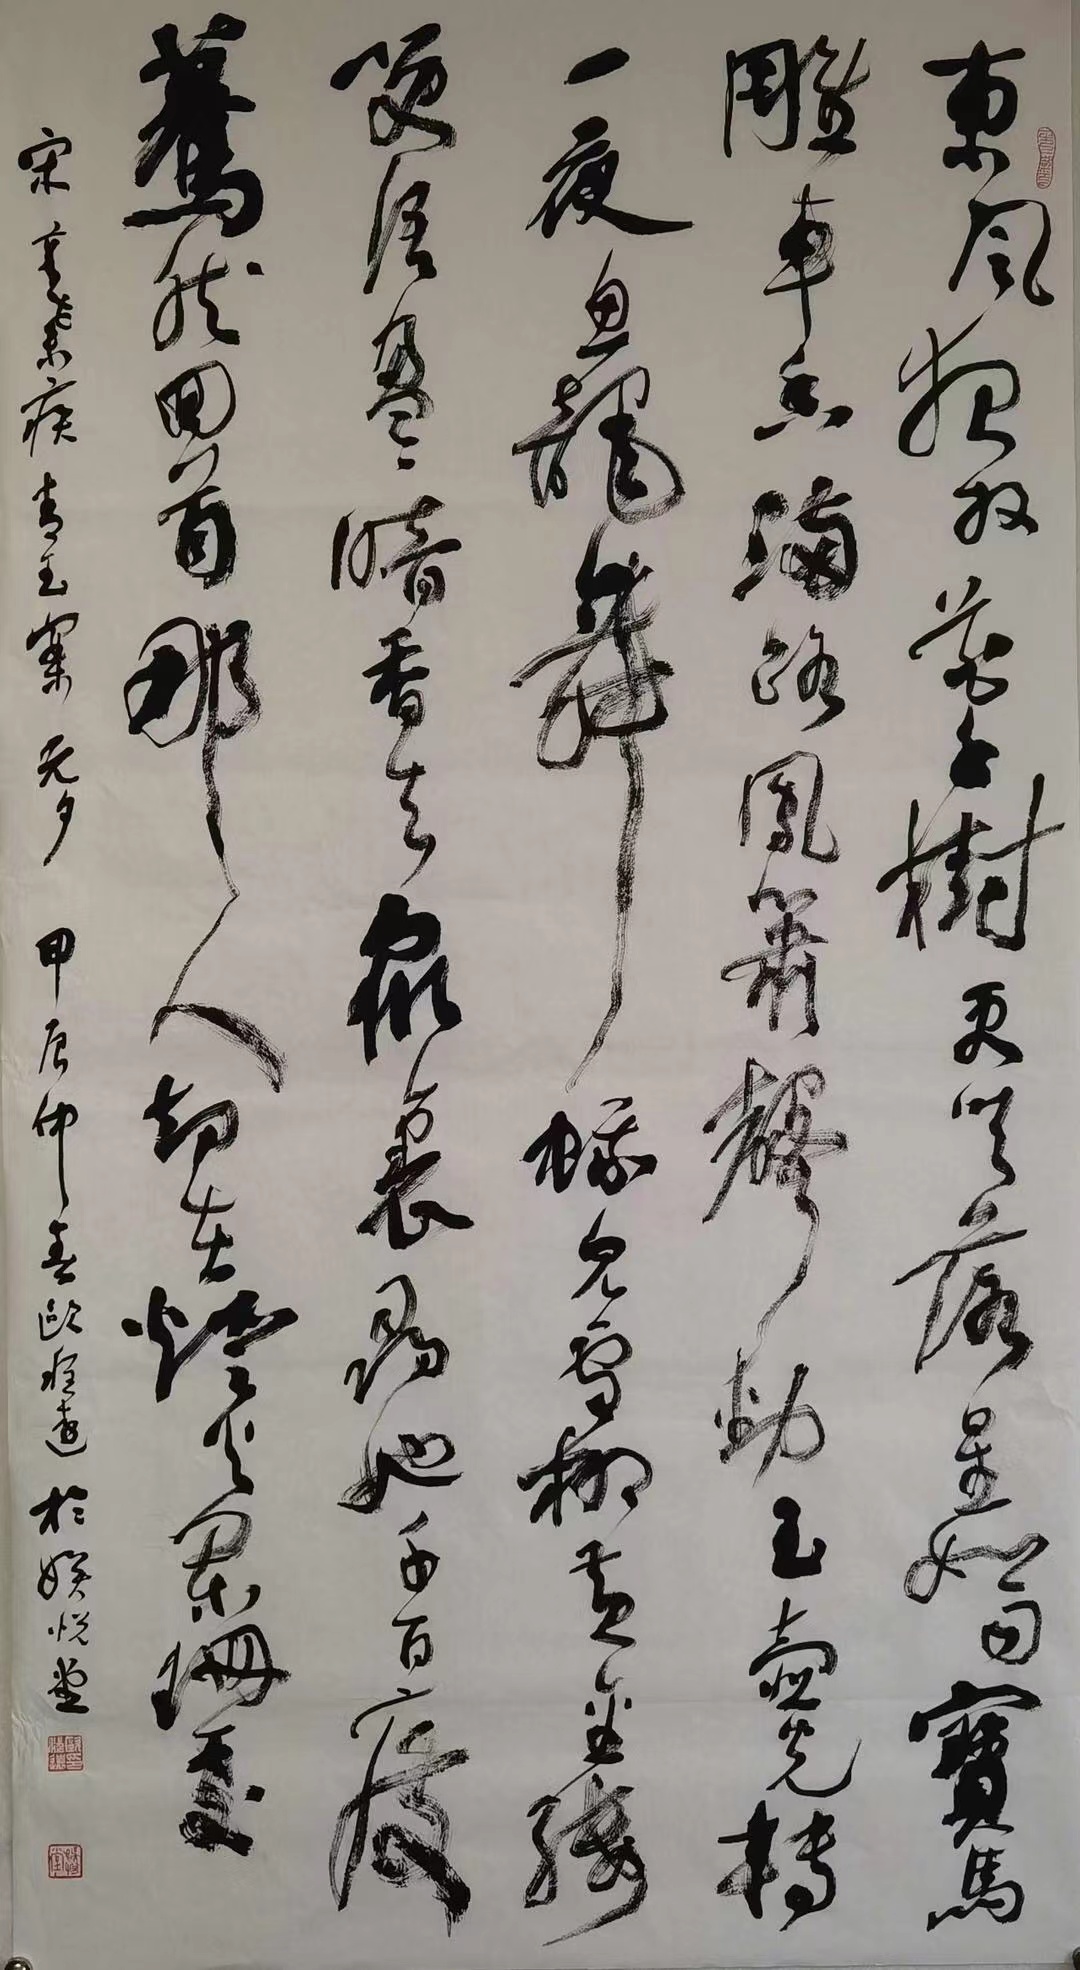 東風夜放花千樹更吹落星如雨寶馬
雕車香滿路鳳簫聲動玉壺光轉
一夜魚龍舞蛾兒雪柳黃金縷
笑語盈盈暗香去眾裏尋他千百度
驀然回首那人卻在燈火闌珊處
宋辛棄疾青玉案元夕 甲辰仲春歐 遠於 悅堂